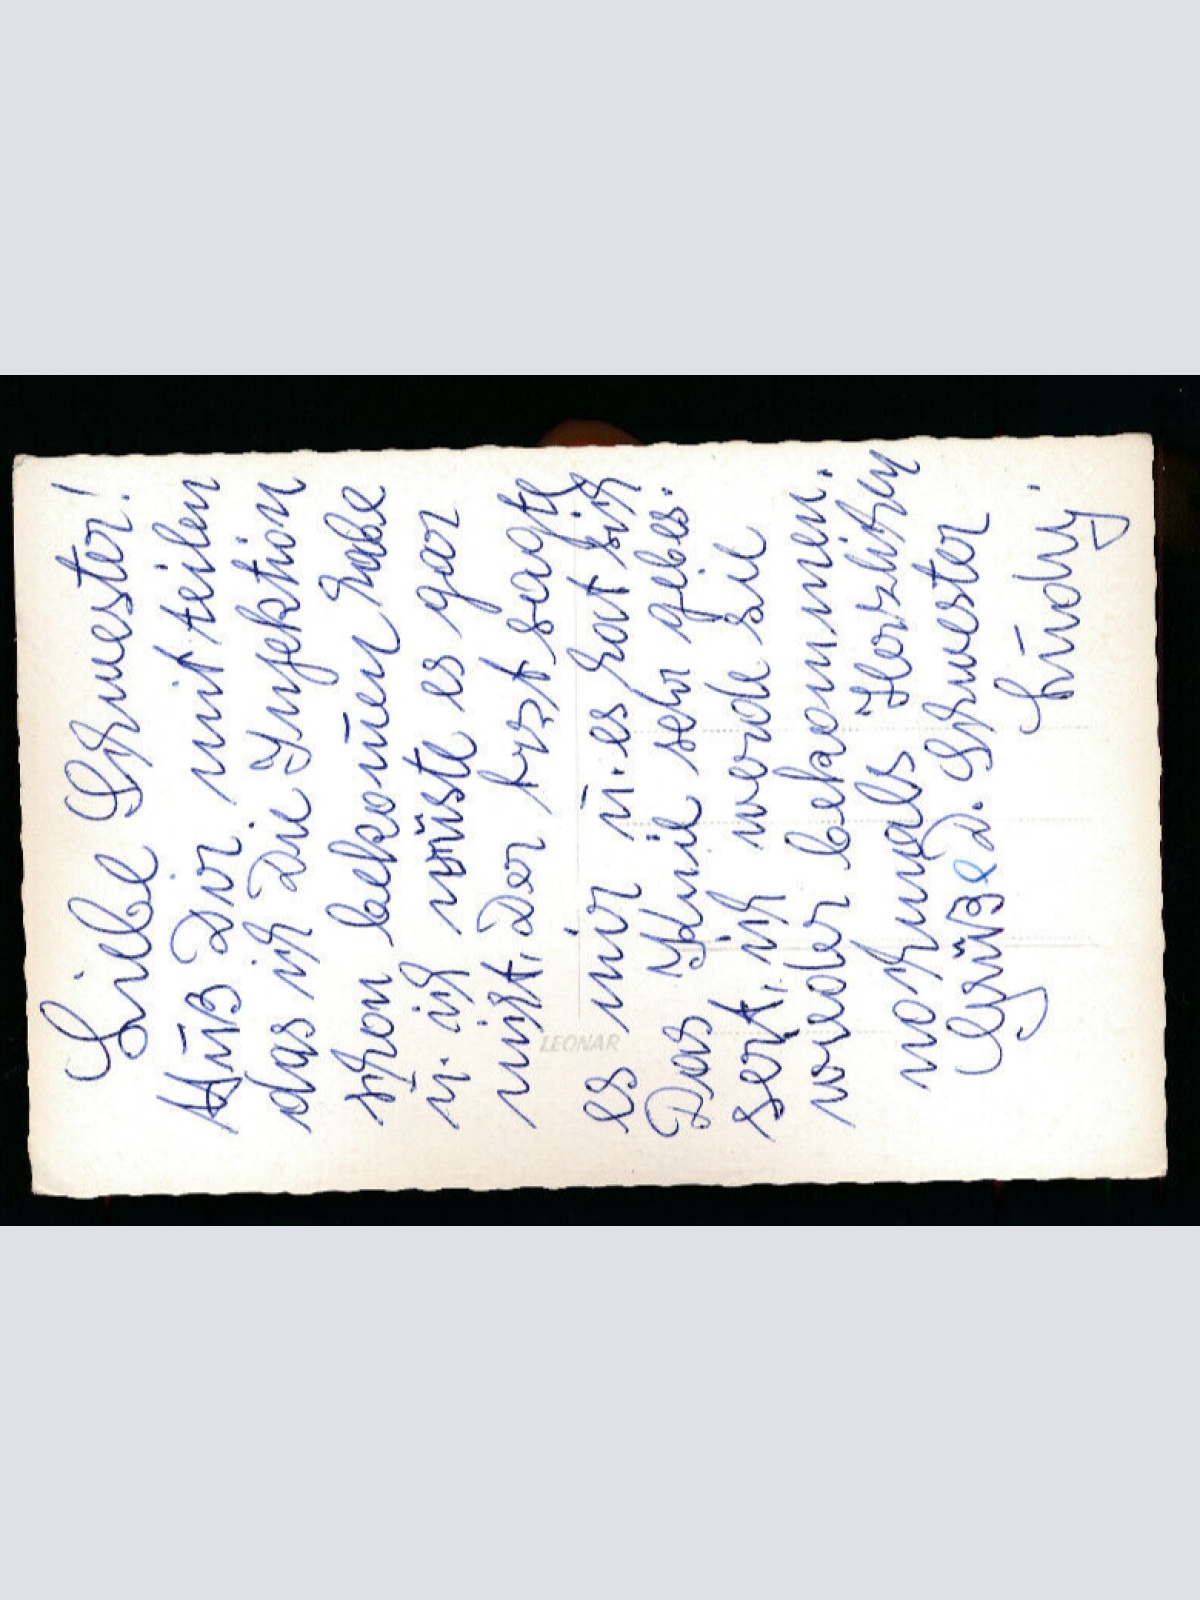 Liebe Schwester!
Muß Dir mit teilen
das ich Die Injektion
schon bekom̄en habe
u. ich wüste es gar
nicht, Der Arzt sagte
es mir u. es hat sich
Das Knie sehr gebes-
sert, ich werde sie
wieder bekommen.
nochmals Herzlichen
Grüße D. Schwester
Rudy.
LEONAR